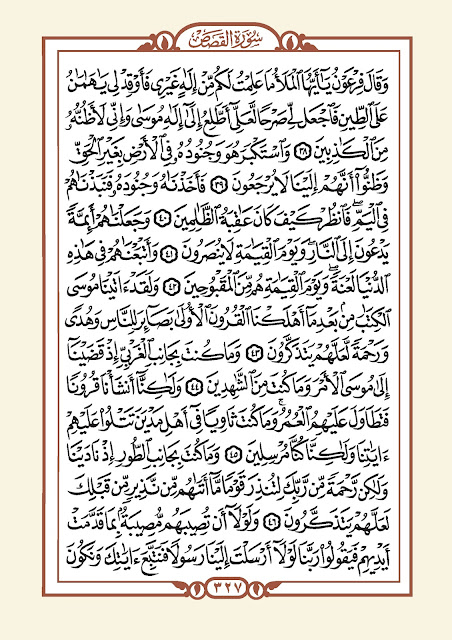 سُورَةُ القَصَصِ
وَقَالَ فِرْعَوْنُ يَـٰٓأَيُّهَا ٱلْمَلَأُ مَا عَلِمْتُ لَكُم مِّنْ إِلَـٰهٍ غَيْرِى فَأَوْقِدْ لِى يَـٰهَـٰمَـٰنُ
عَلَى ٱلطِّينِ فَٱجْعَل لِّى صَرْحًا لَّعَلِّىٓ أَطَّلِعُ إِلَىٰٓ إِلَـٰهِ مُوسَىٰ وَإِنِّى لَأَظُنُّهُۥ
مِنَ ٱلْكَـٰذِبِينَ ٣٨ وَٱسْتَكْبَرَ هُوَ وَجُنُودُهُۥ فِى ٱلْأَرْضِ بِغَيْرِ ٱلْحَقِّ
وَظَنُّوٓا۟ أَنَّهُمْ إِلَيْنَا لَا يُرْجَعُونَ ٣٩ فَأَخَذْنَـٰهُ وَجُنُودَهُۥ فَنَبَذْنَـٰهُمْ
فِى ٱلْيَمِّ ۖ فَٱنظُرْ كَيْفَ كَانَ عَـٰقِبَةُ ٱلظَّـٰلِمِينَ ٤٠ وَجَعَلْنَـٰهُمْ أَئِمَّةً
يَدْعُونَ إِلَى ٱلنَّارِ ۖ وَيَوْمَ ٱلْقِيَـٰمَةِ لَا يُنصَرُونَ ٤١ وَأَتْبَعْنَـٰهُمْ فِى هَـٰذِهِ
ٱلدُّنْيَا لَعْنَةً ۖ وَيَوْمَ ٱلْقِيَـٰمَةِ هُم مِّنَ ٱلْمَقْبُوحِينَ ٤٢ وَلَقَدْ ءَاتَيْنَا مُوسَى
ٱلْكِتَـٰبَ مِنۢ بَعْدِ مَآ أَهْلَكْنَا ٱلْقُرُونَ ٱلْأُولَىٰ بَصَآئِرَ لِلنَّاسِ وَهُدًى
وَرَحْمَةً لَّعَلَّهُمْ يَتَذَكَّرُونَ ٤٣ وَمَا كُنتَ بِجَانِبِ ٱلْغَرْبِىِّ إِذْ قَضَيْنَآ
إِلَىٰ مُوسَى ٱلْأَمْرَ وَمَا كُنتَ مِنَ ٱلشَّـٰهِدِينَ ٤٤ وَلَـٰكِنَّآ أَنشَأْنَا قُرُونًا
فَتَطَاوَلَ عَلَيْهِمُ ٱلْعُمُرُ ۚ وَمَا كُنتَ ثَاوِيًا فِىٓ أَهْلِ مَدْيَنَ تَتْلُوا۟ عَلَيْهِمْ
ءَايَـٰتِنَا وَلَـٰكِنَّا كُنَّا مُرْسِلِينَ ٤٥ وَمَا كُنتَ بِجَانِبِ ٱلطُّورِ إِذْ نَادَيْنَا
وَلَـٰكِن رَّحْمَةً مِّن رَّبِّكَ لِتُنذِرَ قَوْمًا مَّآ أَتَىٰهُم مِّن نَّذِيرٍ مِّن قَبْلِكَ
لَعَلَّهُمْ يَتَذَكَّرُونَ ٤٦ وَلَوْلَآ أَن تُصِيبَهُم مُّصِيبَةٌۢ بِمَا قَدَّمَتْ
أَيْدِيهِمْ فَيَقُولُوا۟ رَبَّنَا لَوْلَآ أَرْسَلْتَ إِلَيْنَا رَسُولًا فَنَتَّبِعَ ءَايَـٰتِكَ وَنَكُونَ
٣٢٧